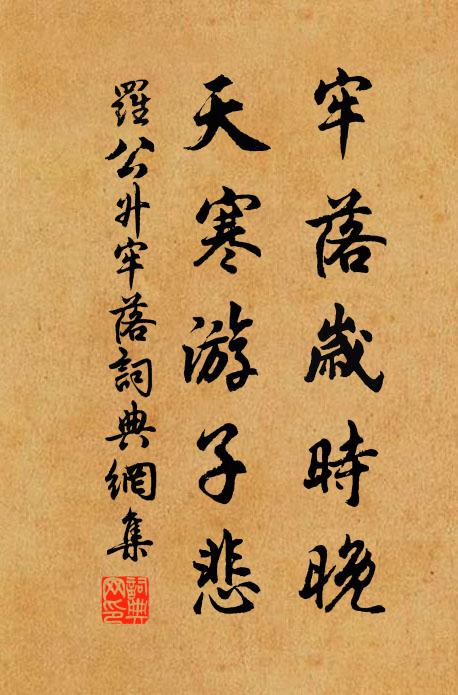 牢落歲時晚
天寒游子悲
羅公升牢落詞典網集
詞典網印